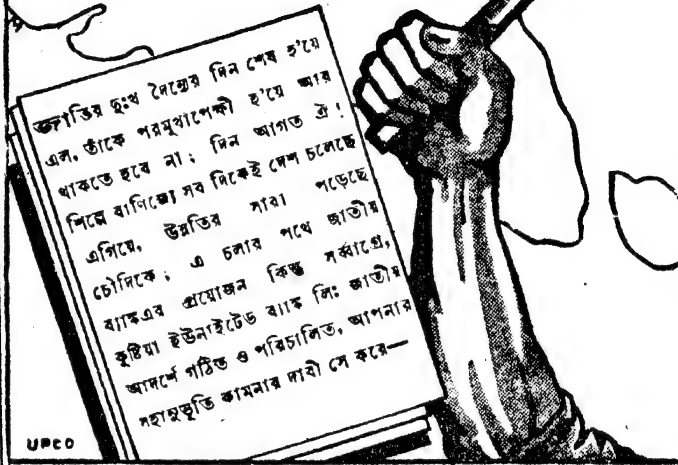 জাতির দুঃখ দৈন্যের দিন শেষ হ'য়ে
এল, তাঁকে পরমুখাপেক্ষী হ'য়ে আর
থাকতে হবে না; দিন আগত ঐ!
শিল্পে বাণিজ্যে সব দিকেই দেশ চলেছে
এগিয়ে, উন্নতির সারা পড়েছে
চৌদিকে; এ চলার পথে জাতীয়
ব্যাঙ্কএর প্রয়োজন কিন্তু সর্ব্বাগ্রে,
কুষ্টিয়া ইউনাইটেড ব্যাঙ্ক লিঃ জাতীয়
আদর্শে গঠিত ও পরিচালিত, আপনার
সহানুভূতি কামনার দাবী সে করে—
UPCO